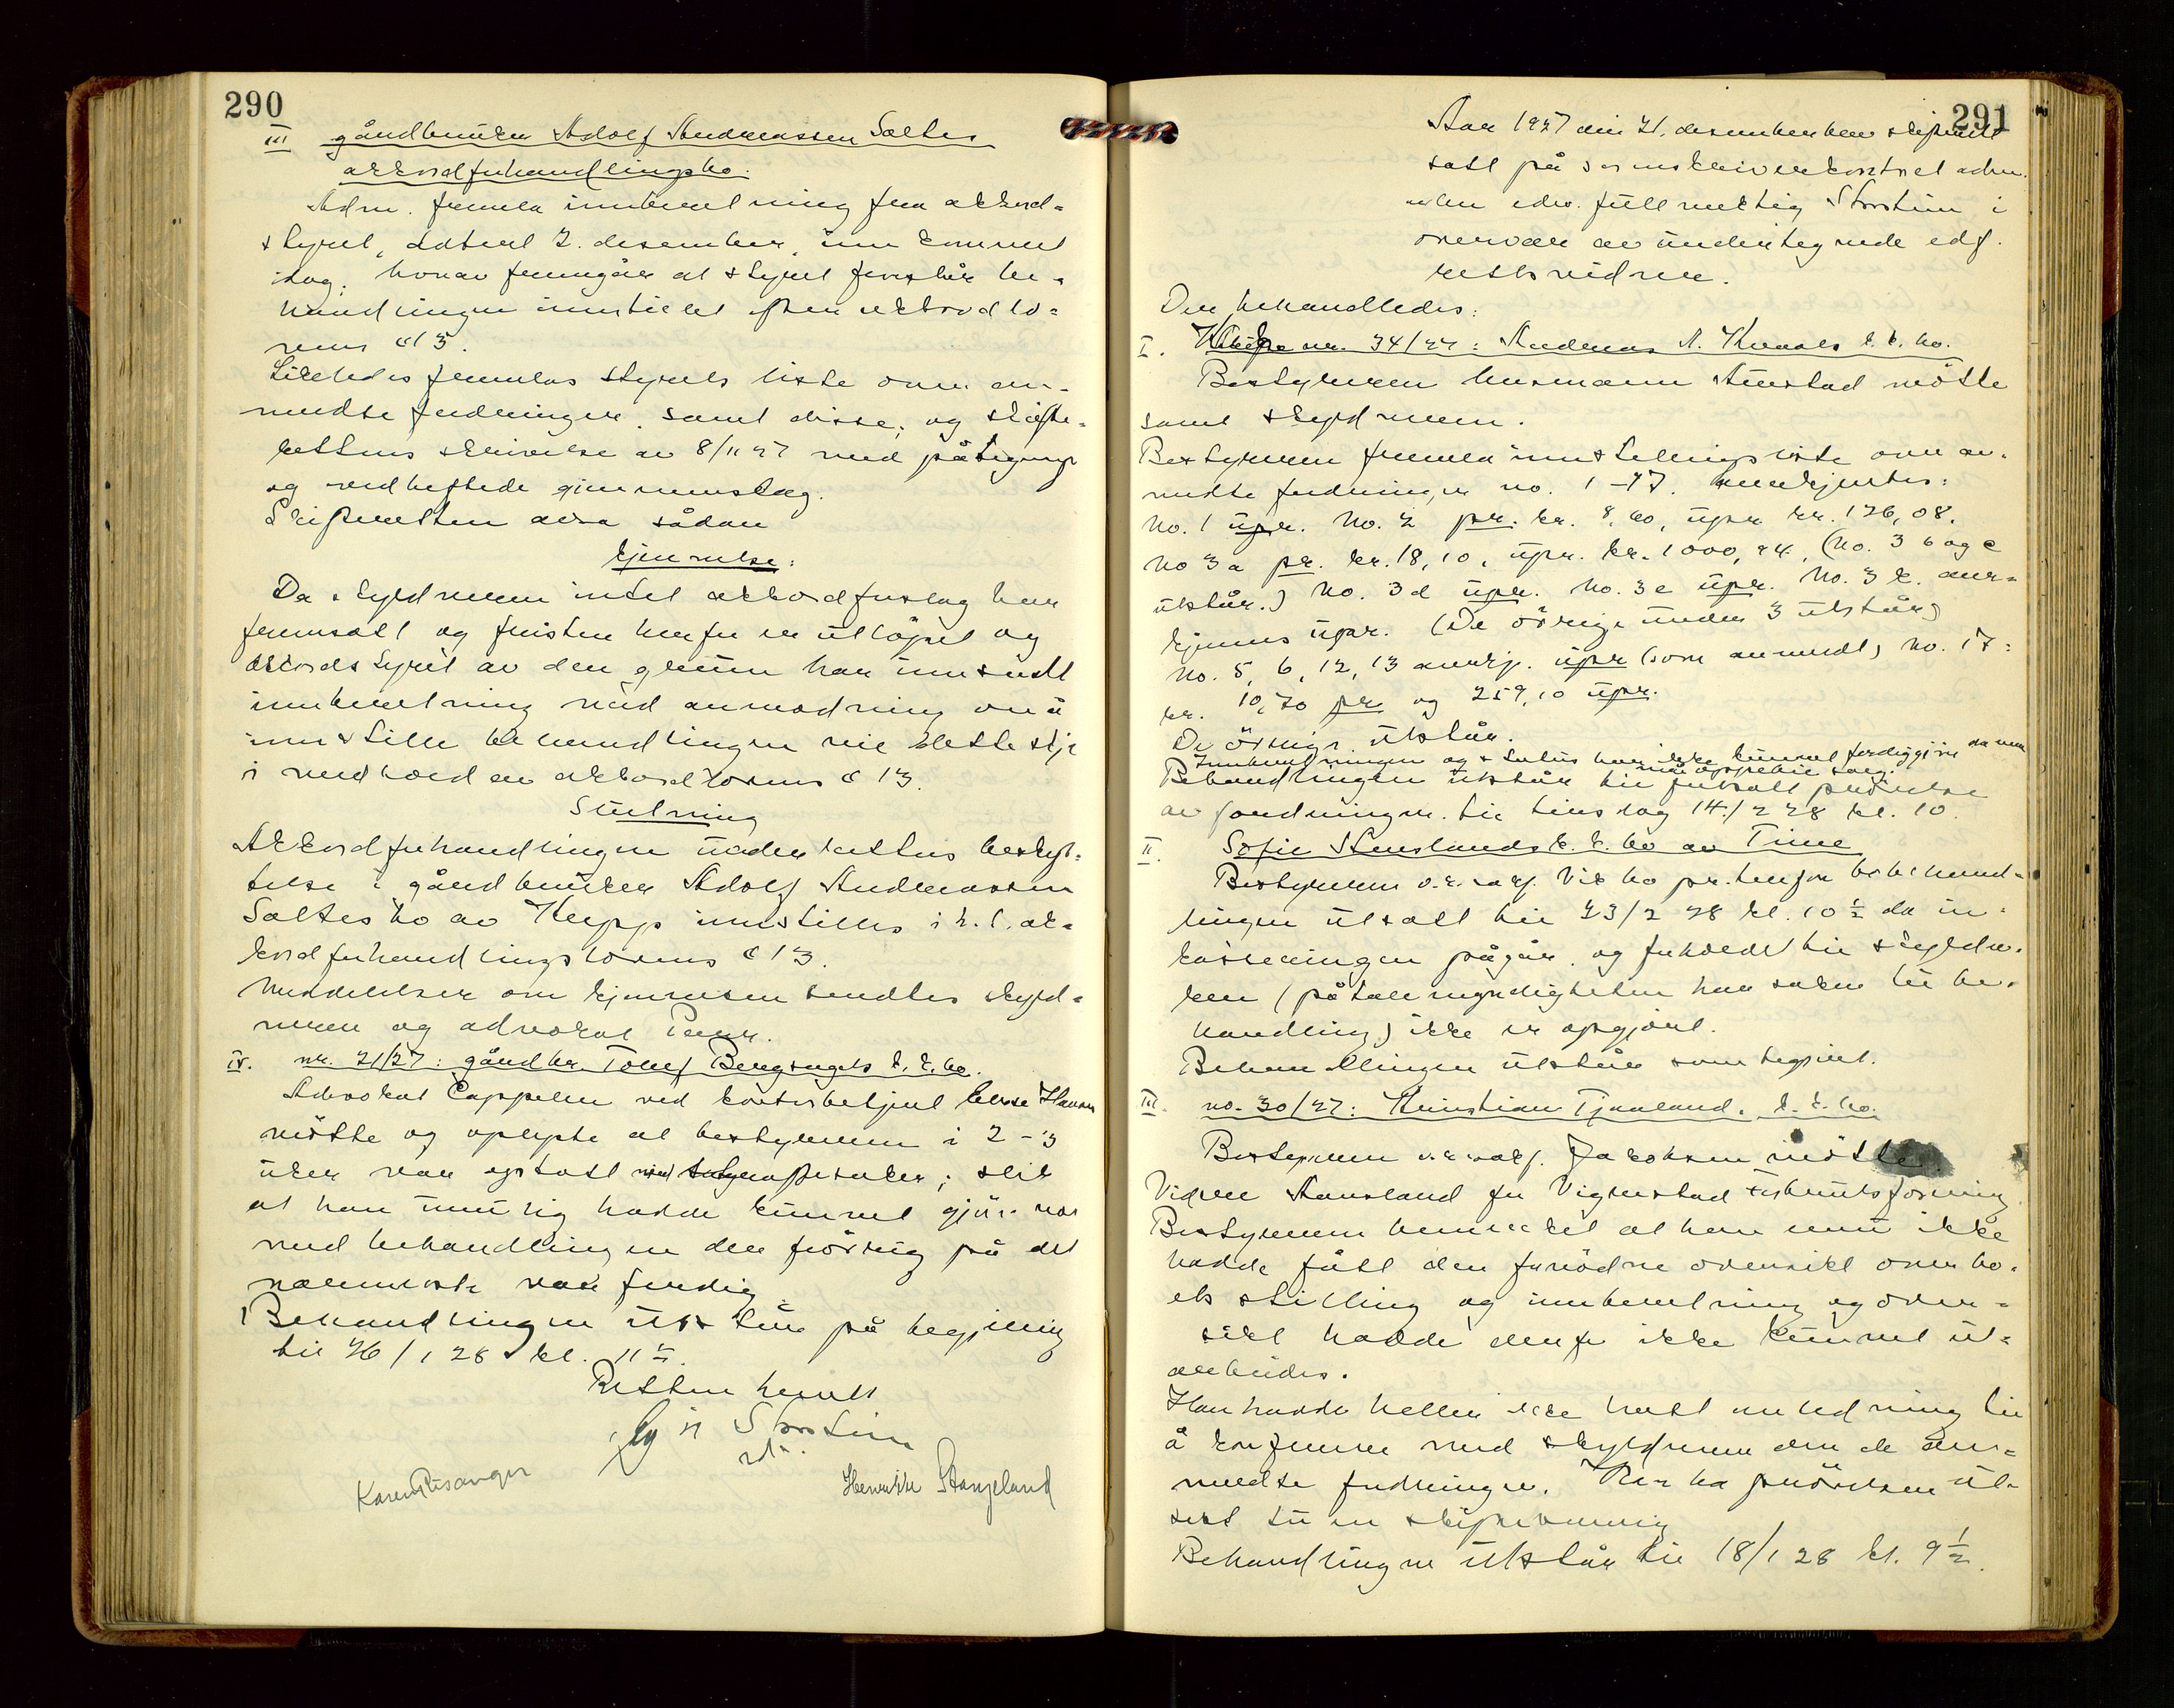 290
III gårdbruker Adolf Andreassen Salte's
akkordforhandlingsbo.
Adm. fremla innberetning fra akkord-
styret, datert 2. desember, inn kommet
idag, hvorav fremgår at styret foreslår be-
handlingen innstillet efter akkordlo-
vens § 13.
Likeledes fremlas styrets liste over an-
meldte fordringer, samt disse, og skifte-
rettens skrivelse av 8/11 27 med påtegning
og vedheftede gjenn
Skifteretten avsa sådan
kjennelse:
Da skyldneren intet akkordforslag har
fremsatt og fristen herfor er utløpet og
akkordstyret av den grunn har innsendt
innberetning med anmodning om å
innstille behandlingen vil dette skje
i medhold av akkordlovens § 13.
Slutning
Akkordforhandlingen under rettens besty-
relse i gårdbruker Adolf Andreassen
Saltes bo av Klepp innstilles i h. t. ak-
kordforhandlingslovens § 13.
Meddelelser om kjennelsen sendtes skyld-
neren og advokat
IV. nr. 21/27: gårdbr. Tollef Bergsagels k. k. bo.
Advokat Cappelen ved kontorbetjent Hansen
møtte og oplyste at bestyreren i 2 - 3
uker var optatt med saker, slik
at han umulig hadde kunnet gjøre noe
med behandlingen den forøvrig på det
nærmeste var ferdig.
Behandlingen utstår på begjæring
til 26/1 28 kl. 11
Retten hevet
Storstein
Karen Risanger Henrikke Stangeland
291
Aar 1927 den 21. desember blev skifterett
satt på sorenskriverkontoret adm.
av edsv. fullmektig Storstein i
overvær av undertegnede edf.
rettsvidner.
Der behandledes:
I. Klepp nr. 34/27: Andreas A. k. k. bo.
Bestyreren lensmann Austad møtte
samt skyldneren.
Bestyreren fremla innstillingsliste over an-
meldte fordringer no. 1 - 17. Anerkjentes:
No. 1 upr. No. 2 pr. kr. 8,60, upr kr. 126,08.
No 3 a pr. kr. 18,10, upr. kr. 1000,24. (No. 3 b og c
utstår.) No. 3 d upr. No. 3 e upr. No. 3 k. aner-
kjennes upr. (De övrige under 3 utstår)
No. 5, 6, 12, 13 anerkj. upr (som anmeldt) No. 17:
kr. 10,70 pr og 259,10 upr.
De övrige utstår.
Innberetningen og status har ikke kunnet ferdiggjøres da man
må
Behandlingen utstår til fortsatt prøvelse
av fordringen til tirsdag 14/2 28 kl. 10.
II. Sofie Auslands k. k. bo av Time
Bestyreren o.r.sakf. Vik ba pr. telefon bobehand-
lingen utsatt til 23/2 28 kl. 10 ½ da in-
kasseringen pågår, og forholdet til skyldne-
ren (påtalemyndigheten har saken til be-
handling) ikke er opgjort.
Behandlingen utstår som begjært.
III. no. 30/27: Kristian Tjaaland. k. k. bo.
Bestyreren o.r.sakf. Jakobsen møtte
Videre Aausland for Vigrestad
Bestyreren bemerket at han ennu ikke
hadde fått den fornødne oversikt over bo-
ets stilling og innberetning og over-
sikt hadde derfor ikke kunnet ut-
arbeides.
Han hadde heller ikke hatt anledning til
å konferere med skyldneren om de an-
meldte fordringer. Han ba prøvelsen ut-
satt til en skiftesamling
Behandlingen utstår til 18/1 28 kl. 9 ½.